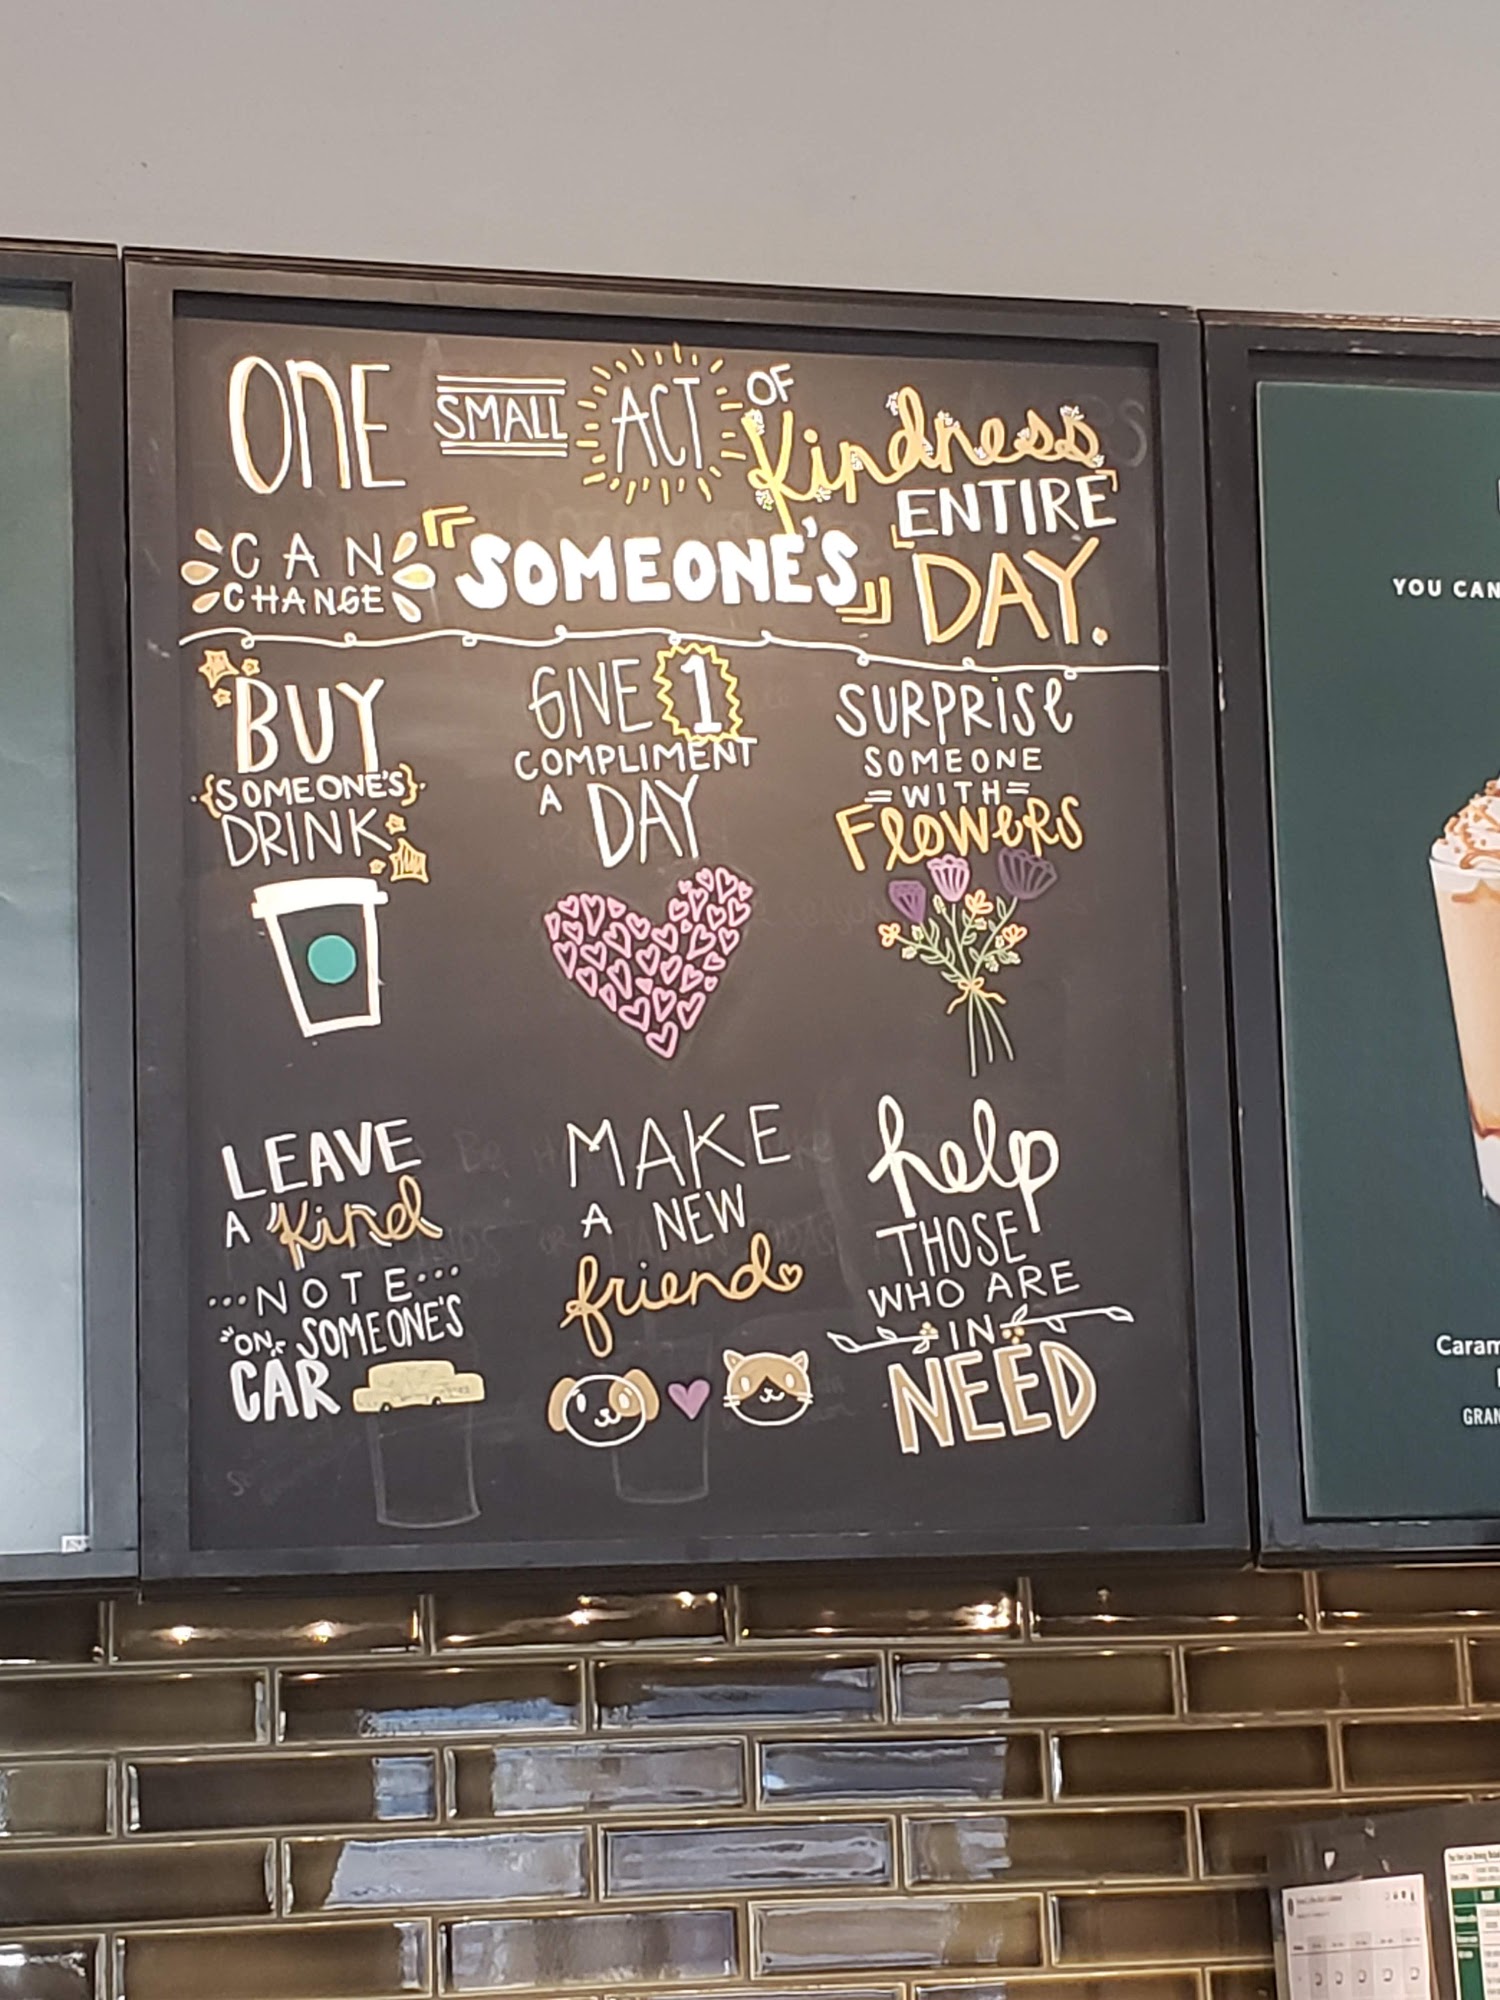 ONE SMALL ACT OF Kindness
CAN CHANGE SOMEONE'S ENTIRE DAY.
BUY
{SOMEONE'S}
DRINK
GIVE 1
COMPLIMENT
A DAY
SURPRISE
SOMEONE
=WITH=
FLOWERS
LEAVE
A Kind
...NOTE...
"ON" SOMEONE'S
CAR
MAKE
A NEW
friend
help
THOSE
WHO ARE
IN
NEED
YOU CAN
Caram
GRAN